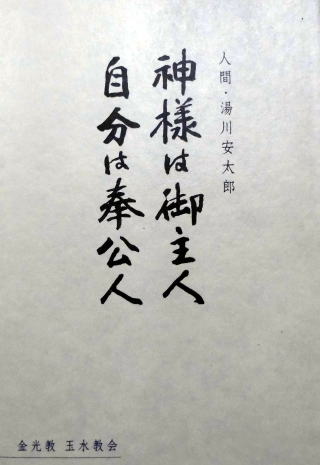 人間・湯川安太郎
神様は御主人
自分は奉公人
金光教 玉水教会